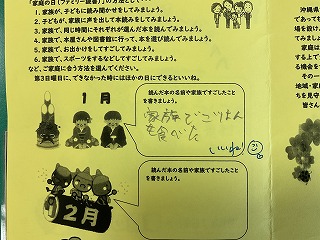 「家庭の日（ファミリー読書）」の方法として！
1．家族が、子どもに読み聞かせをしてみましょう。
2．子どもが、家族に声を出して本読みをしてみましょう。
3．家族で、同じ時間にそれぞれが選んだ本を読んでみましょう。
4．家族で、本屋さんや図書館に行って、本を選び読んでみましょう。
5．家族で、お出かけをしてすごしてみましょう。
6．家族で、スポーツをするなどしてすごしてみましょう。
など、ご家庭に合う方法を選んでください。
第3日曜日に、できなかった時にはほかの日にできるといいね。
1月
読んだ本の名前や家族ですごしたことを書きましょう。
家族でごはん
を食べた
いいね！
2月
読んだ本の名前や家族ですごしたことを書きましょう。
沖縄県